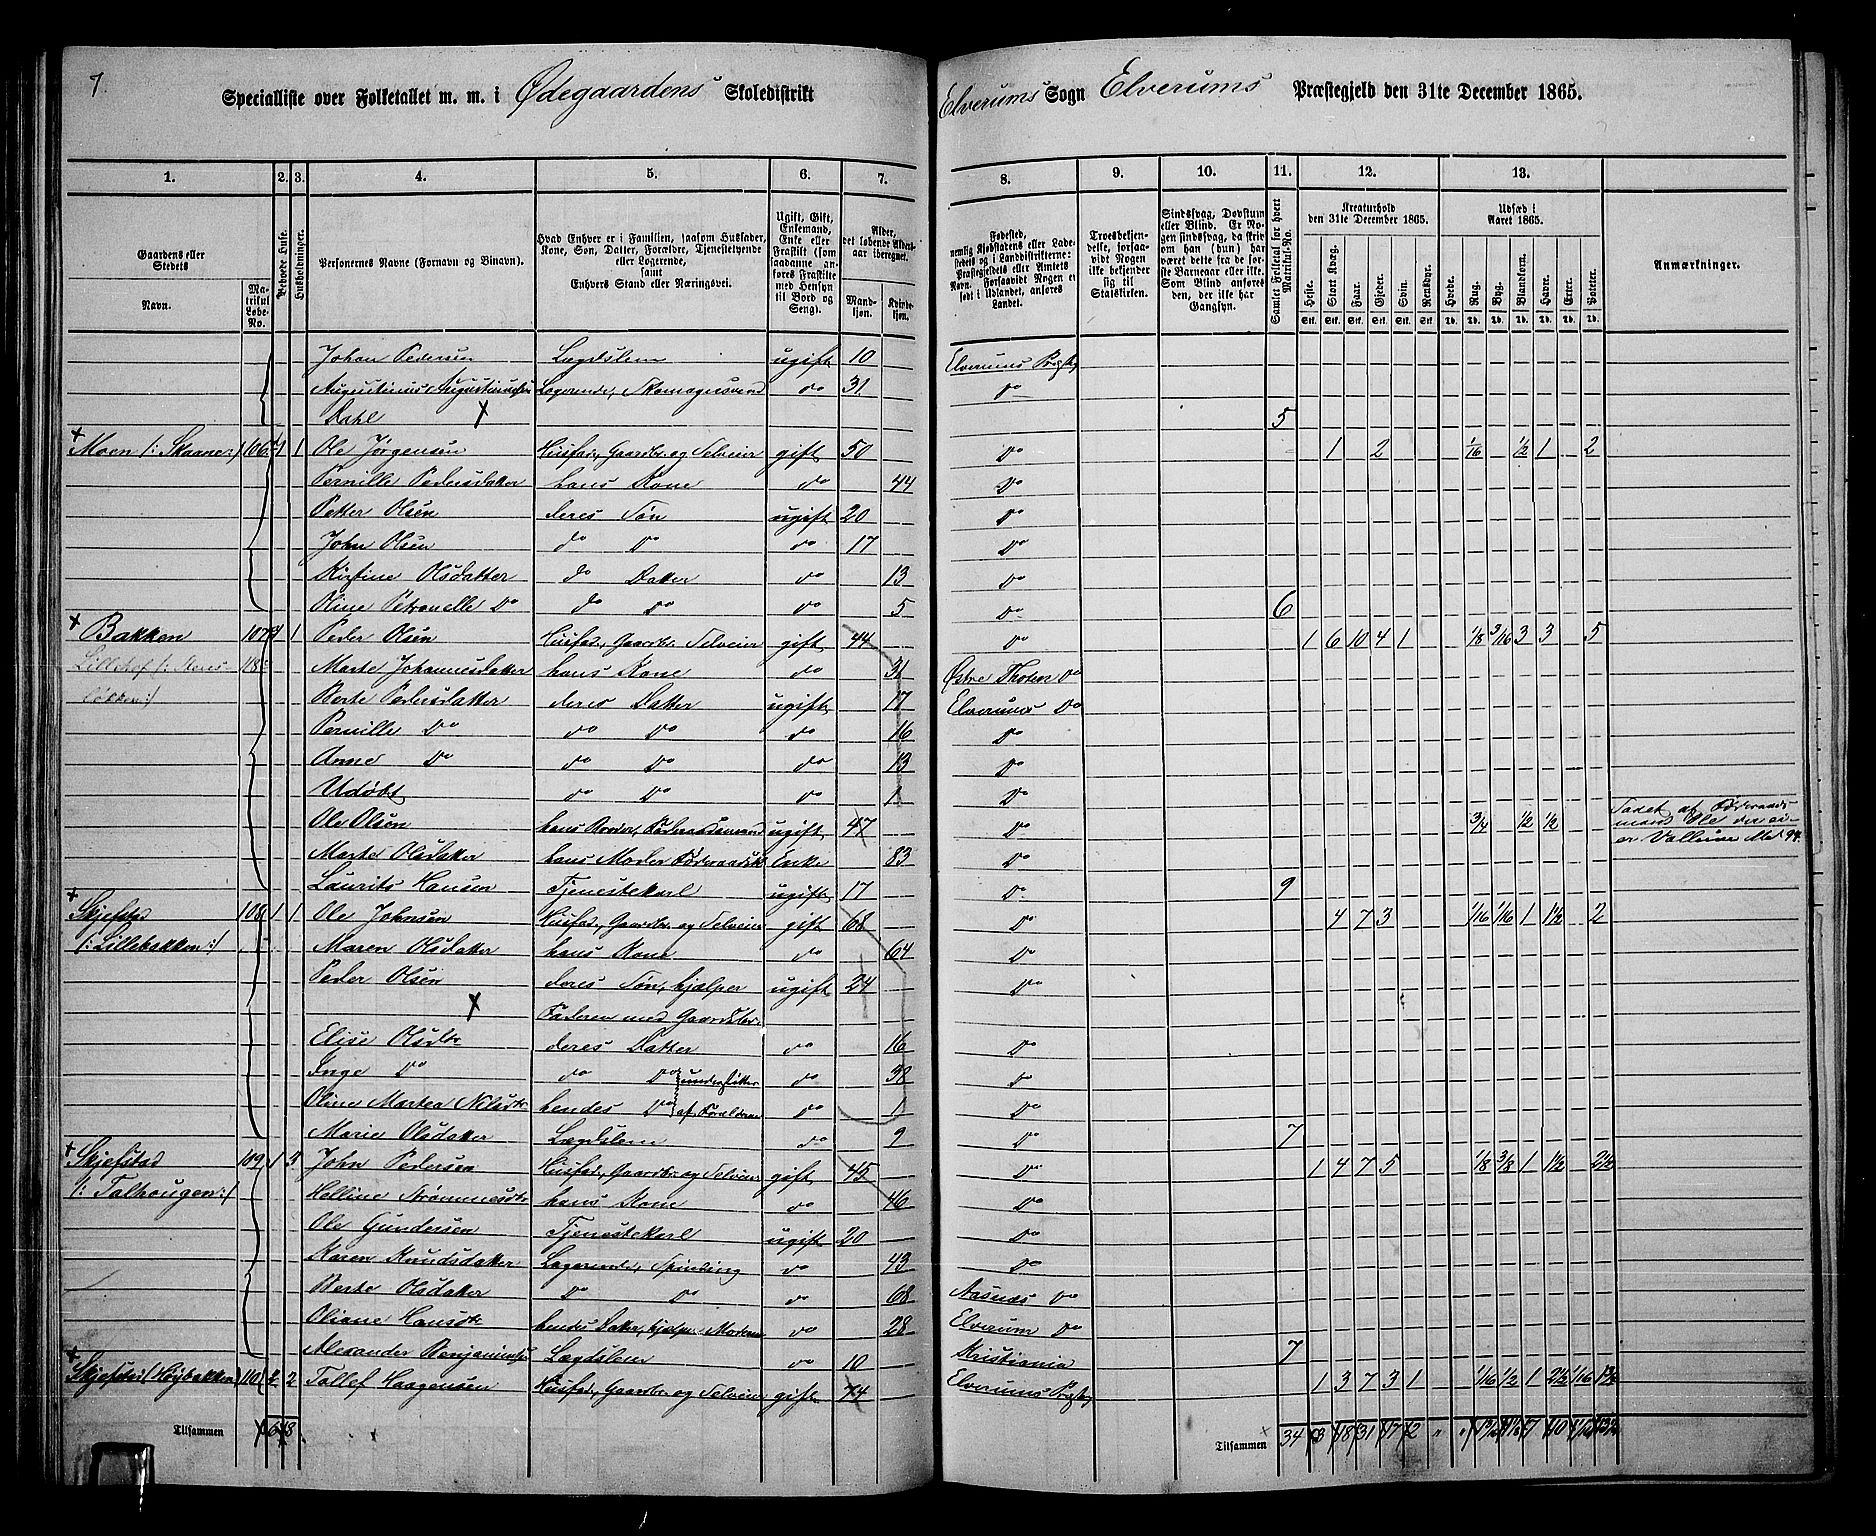 7.
Specialliste over Folketallet m. m. i Ødegaardens Skoledistrikt
Elverums Sogn Elverums Præstegjeld den 31te December 1865.
1. 2. 3. 4. 5. 6. 7. 8. 9. 10. 11. 12. 13.
Gaardens eller Stedets Navn.
Matrikul Løbe-No.
Beboede Huse.
Husholdninger.
Personernes Navne (Fornavn og Binavn).
Hvad Enhver er i Familien, saasom Husfader, Kone, Søn, Datter, Forældre, Tjenestetyende eller Logerende, samt Enhvers Stand eller Næringsvei.
Ugift, Gift, Enkemand, Enke eller Fraskilt (som saadanne anføres Fraskilte med Hensyn til Bord og Seng).
Alder, det løbende Alders-aar iberegnet.
Mandkjøn. Kvindekjøn.
Fødested,
Anmærkninger.
Kreaturhold den 31te December 1865.
Udsæd i Aaret 1865.
Heste. Stort Kvæg. Faar. Gjeder. Svin. Rensdyr. Hvede. Rug. Byg. Blandkorn. Havre. Erter. Poteter.
Johan Pedersen Lægdslem ugift 10 Elverums Prgj
Augustinus Augustinussen Logerende, Skomagersvend do 31 Do
Dahl X 5
Moen /: Skaane :/ 106 1 1 Ole Jørgensen Husfad., Gaardbr. og Selveier gift 50 Do 1 2 1/16 1/2 1 2
Pernille Pedersdatter hans Kone do 44 Do
Petter Olsen deres Søn ugift 20 Do
John Olsen do Do do 17 Do
Kirstine Olsdatter do Datter do 13 Do
Oline Petronelle Do do Do do 5 Do 6
Bakken 107 1 Peder Olsen Husfad., Gaardbr. Selveier gift 44 Do 1 6 10 4 1 1/8 3/16 3 3 5
118 Marte Johannesdatter hans Kone do 31 Østre Thoten Do
Berte Pedersdatter deres Datter ugift 17 Elverums Do
Pernille Do do Do do 16 Do
Anne Do do Do do 13 Do
Udøbt do Do do 1 Do
Ole Olsen hans Broder, Føderaadsmand ugift 47 Do 3/4 1/2 1/2
Marte Olsdatter hans Moder Enke 83 Do
Laurits Hansen Tjenestekarl ugift 17 Do 9
Skjefstad 108 1 1 Ole Johnsen Husfad., Gaardbr. og Selveier gift 68 Do 4 7 3 1/16 1/16 1 1 1/2 2
/: Lillebakken :/ Maren Olsdatter hans Kone do 64 Do
Peder Olsen deres Søn, hjælper ugift 24 Do
X Faderen med Gaardsbr.
Elise Olsdtr deres Datter do 16 Do
Inge Do do Do understøttes do 38 Do
Oline Martea Nilsdtr hendes Do af Forældrene do 1 Do
Marie Olsdatter Lægdslem do 9 Do 7
Skjefstad 109 1 3 John Pedersen Husfad., Gaardbr. og Selveier gift 45 Do 1 4 7 5 1/8 3/8 1 1 1/2 2 1/2
/: Talhougen :/ Helline Strømmesdtr hans Kone do 46 Do
Ole Gundersen Tjenestekarl ugift 20 Do
Karen Knudsdatter Logerende, Spinding do 43 Do
Berte Olsdatter Do Do do 68 Aasnes Do
Oliane Hansdtr hendes Datter, hjælper Moderen do 28 Elverum Do
Alexander Benjaminsen Lægdslem do 10 Kristiania 7
Skjefstad (Høybakken) 110 2 2 Tollef Haagensen Husfad., Gaardbr. og Selveier gift 74 Elverums Prgj 1 3 7 3 1 1/16 1/2 1 2 1/2 1/16 1 1/2
Tilsammen 6 8
Tilsammen 34 3 18 31 17 2 " " 7 10